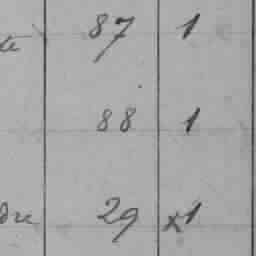 87 1
88 1
29 x1